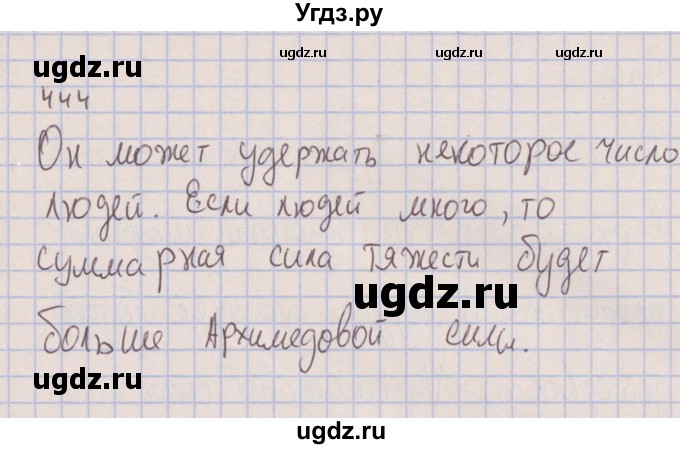 Угдз.ру
ugdz.ru ugdz.ru ugdz.ru
444
Он может удержать некоторое число
людей. Если людей много, то
суммарная сила тяжести будет
ugdz.ru
больше Архимедовой силы.
ugdz.ru ugdz.ru ugdz.ru
ugdz.ru